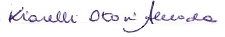 Kiarelli Otoni Almeida